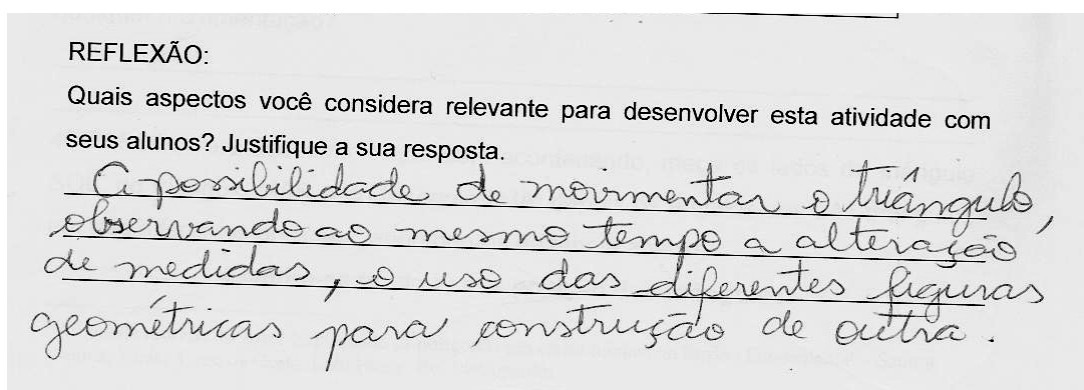 REFLEXÃO:
Quais aspectos você considera relevante para desenvolver esta atividade com
seus alunos? Justifique a sua resposta.
A possibilidade de movimentar o triângulo,
observando ao mesmo tempo a alteração
de medidas, o uso das diferentes figuras
geométricas para construção de outra.